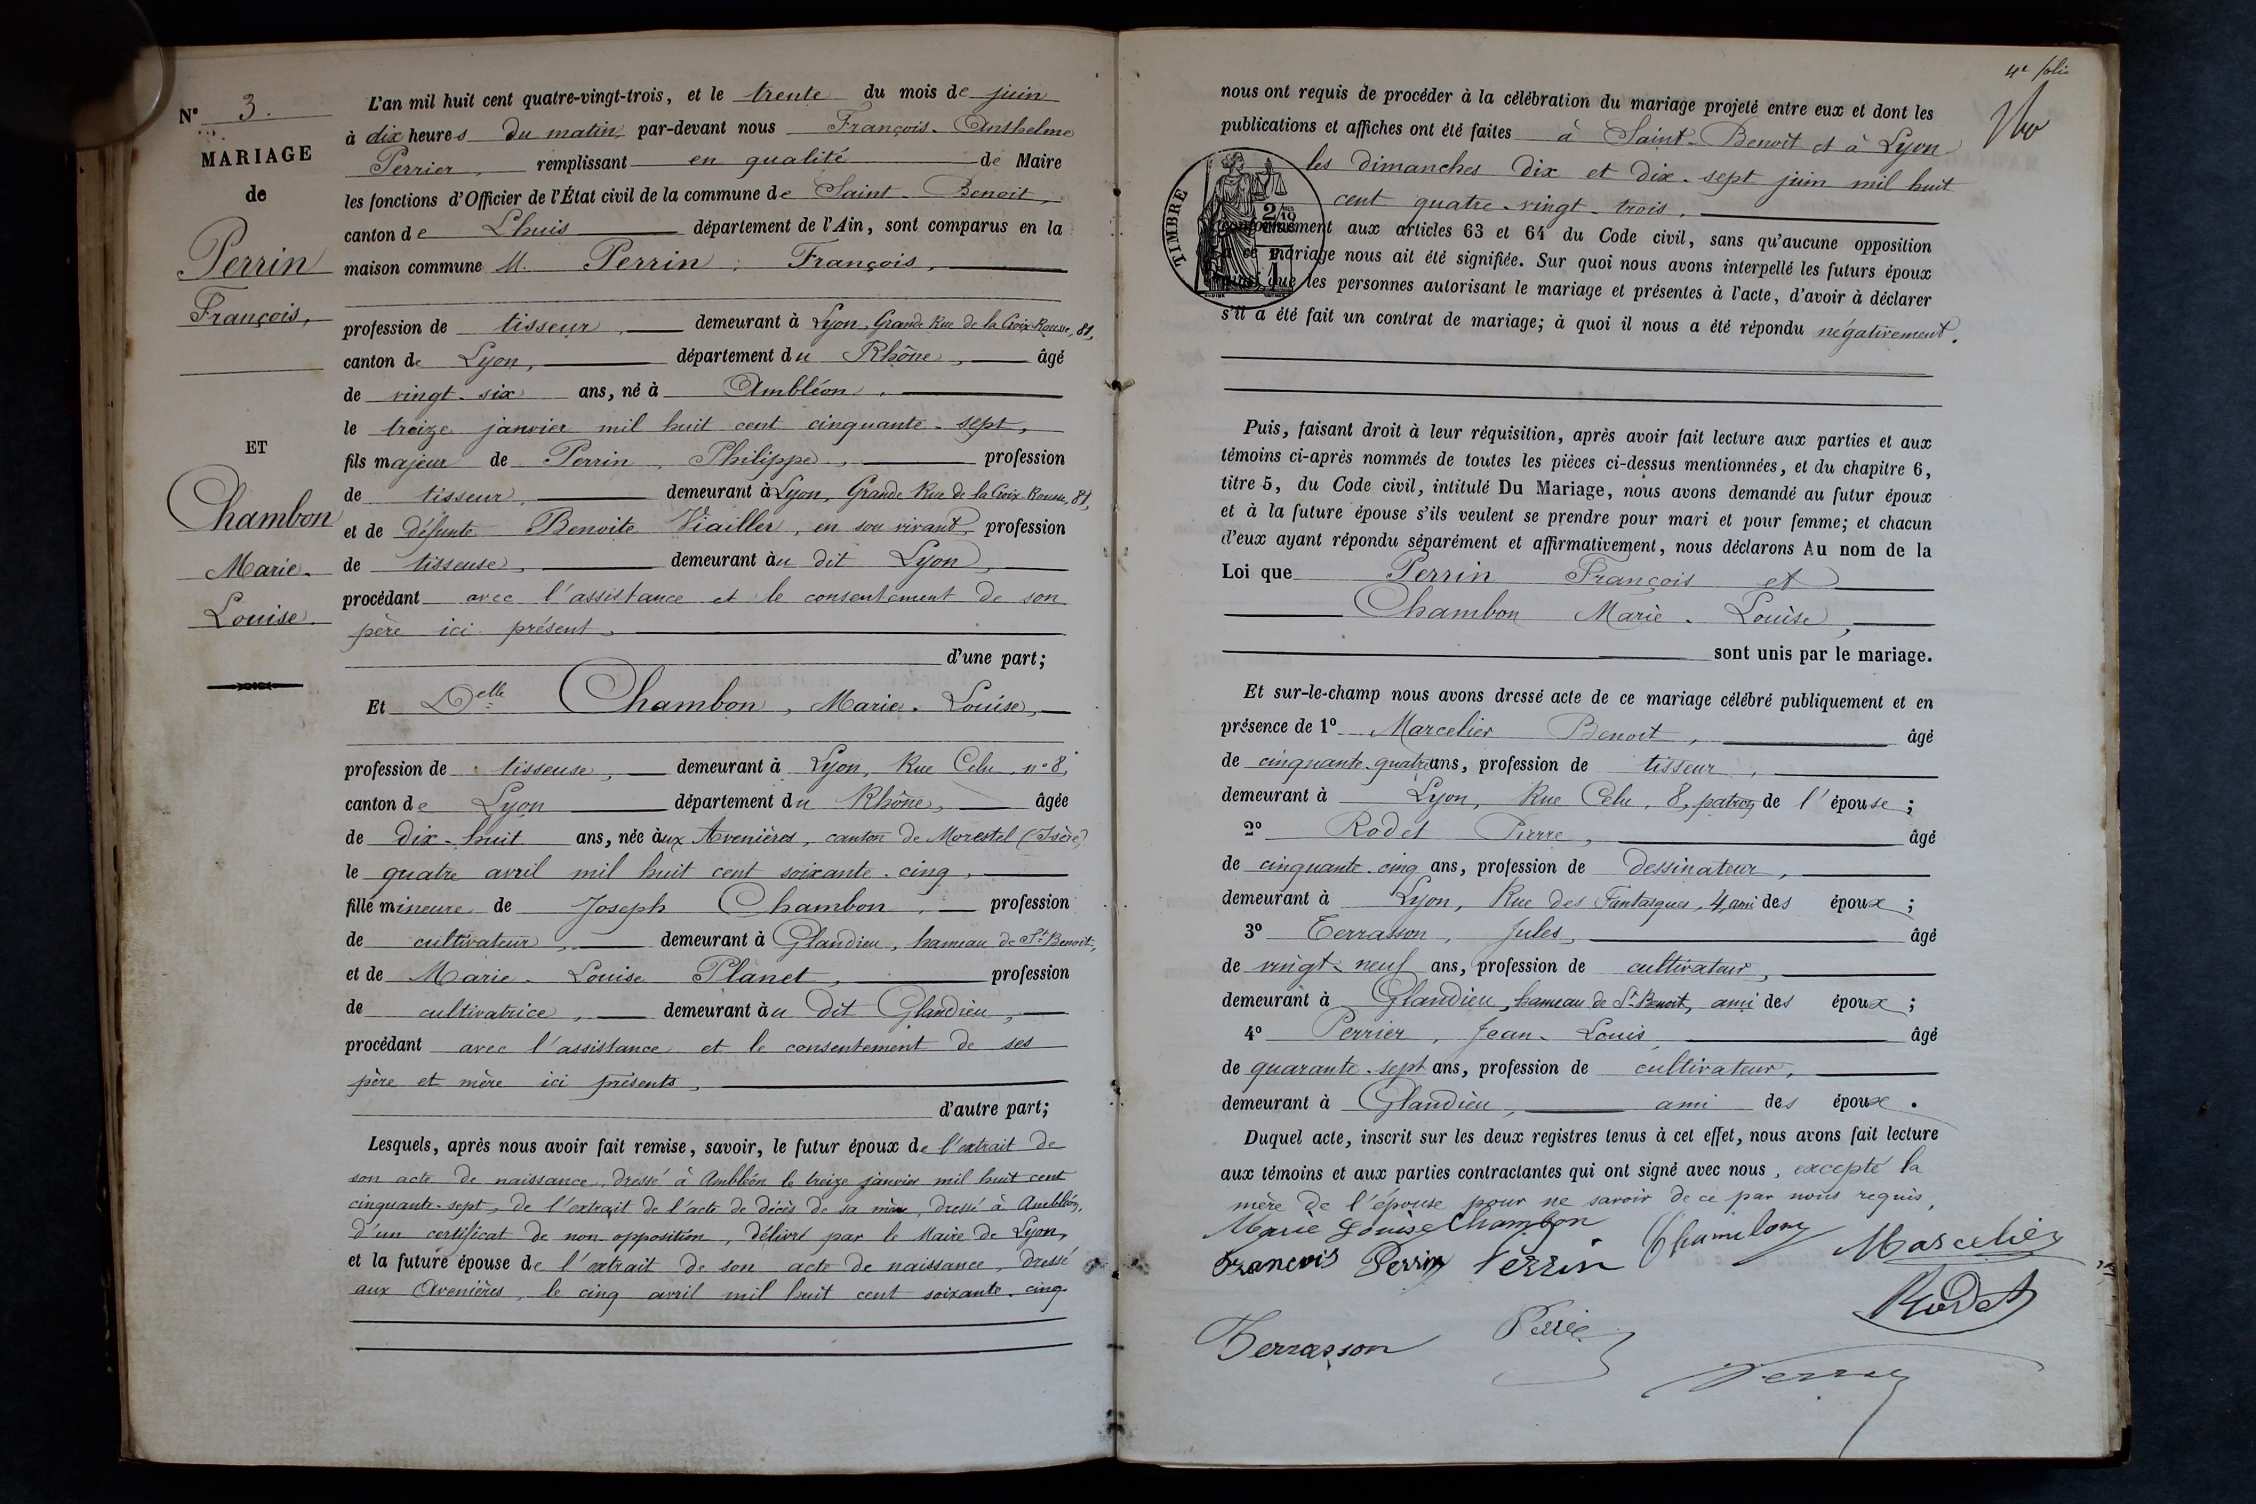 N° 3.
MARIAGE
de
Perrin
François,
ET
Chambon
Marie-
Louise.
L'an mil huit cent quatre-vingt-trois, et le trente du mois de juin
à dix heures du matin, par-devant nous François-Anthelme
Perrier, remplissant en qualité de Maire
les fonctions d'Officier de l'État civil de la commune de Saint-Benoit,
canton de Lhuis département de l'Ain, sont comparus en la
maison commune M. Perrin, François,
profession de tisseur, demeurant à Lyon, Grande Rue de la Croix-Rousse, 81,
canton de Lyon, département du Rhône, âgé
de vingt-six ans, né à Ambléon,
le treize janvier mil huit cent cinquante-sept,
fils majeur de Perrin, Philippe, profession
de tisseur, demeurant à Lyon, Grande Rue de la Croix-Rousse, 81,
et de défunte Benoite Viailler, en son vivant, profession
de tisseuse, demeurant au dit Lyon,
procédant avec l'assistance et le consentement de son
père ici présent,
d'une part;
Et Delle Chambon, Marie-Louise,
profession de tisseuse, demeurant à Lyon, Rue Celu, n° 8,
canton de Lyon département du Rhône, âgée
de dix-huit ans, née aux Avenières, canton de Morestel (Isère)
le quatre avril mil huit cent soixante-cinq,
fille mineure de Joseph Chambon, profession
de cultivateur, demeurant à Glandieu, hameau de St Benoit,
et de Marie-Louise Planet, profession
de cultivatrice, demeurant au dit Glandieu,
procédant avec l'assistance et le consentement de ses
père et mère ici présents,
d'autre part;
Lesquels, après nous avoir fait remise, savoir, le futur époux de l'extrait de
son acte de naissance, dressé à Ambléon le treize janvier mil huit cent
cinquante-sept, de l'extrait de l'acte de décès de sa mère, dressé à Ambléon,
d'un certificat de non opposition, délivré par le Maire de Lyon,
et la future épouse de l'extrait de son acte de naissance, dressé
aux Avenières, le cinq avril mil huit cent soixante-cinq
4e folio
nous ont requis de procéder à la célébration du mariage projeté entre eux et dont les
publications et affiches ont été faites à Saint-Benoit et à Lyon
les dimanches dix et dix-sept juin mil huit
cent quatre-vingt-trois,
TIMBRE
conformément aux articles 63 et 64 du Code civil, sans qu'aucune opposition
à ce mariage nous ait été signifiée. Sur quoi nous avons interpellé les futurs époux
ainsi que les personnes autorisant le mariage et présentes à l'acte, d'avoir à déclarer
s'il a été fait un contrat de mariage; à quoi il nous a été répondu négativement.
Puis, faisant droit à leur réquisition, après avoir fait lecture aux parties et aux
témoins ci-après nommés de toutes les pièces ci-dessus mentionnées, et du chapitre 6,
titre 5, du Code civil, intitulé Du Mariage, nous avons demandé au futur époux
et à la future épouse s'ils veulent se prendre pour mari et pour femme; et chacun
d'eux ayant répondu séparément et affirmativement, nous déclarons Au nom de la
Loi que Perrin François et
Chambon Marie-Louise,
sont unis par le mariage.
Et sur-le-champ nous avons dressé acte de ce mariage célébré publiquement et en
présence de 1° Marcelier Benoit, âgé
de cinquante-quatre ans, profession de tisseur,
demeurant à Lyon, Rue Celu, 8, patron de l'épouse;
2° Rodet Pierre, âgé
de cinquante-cinq ans, profession de dessinateur,
demeurant à Lyon, Rue des Fantasques, 4, ami des époux;
3° Terrasson, Jules, âgé
de vingt-neuf ans, profession de cultivateur,
demeurant à Glandieu, hameau de St Benoit, ami des époux;
4° Perrier, Jean-Louis âgé
de quarante-sept ans, profession de cultivateur,
demeurant à Glandieu, ami des époux.
Duquel acte, inscrit sur les deux registres tenus à cet effet, nous avons fait lecture
aux témoins et aux parties contractantes qui ont signé avec nous, excepté la
mère de l'épouse pour ne savoir de ce par nous requis,
Marie Louise Chambon Chambon Marcelier
Francois Perrin Perrin
Rodet
Terrasson